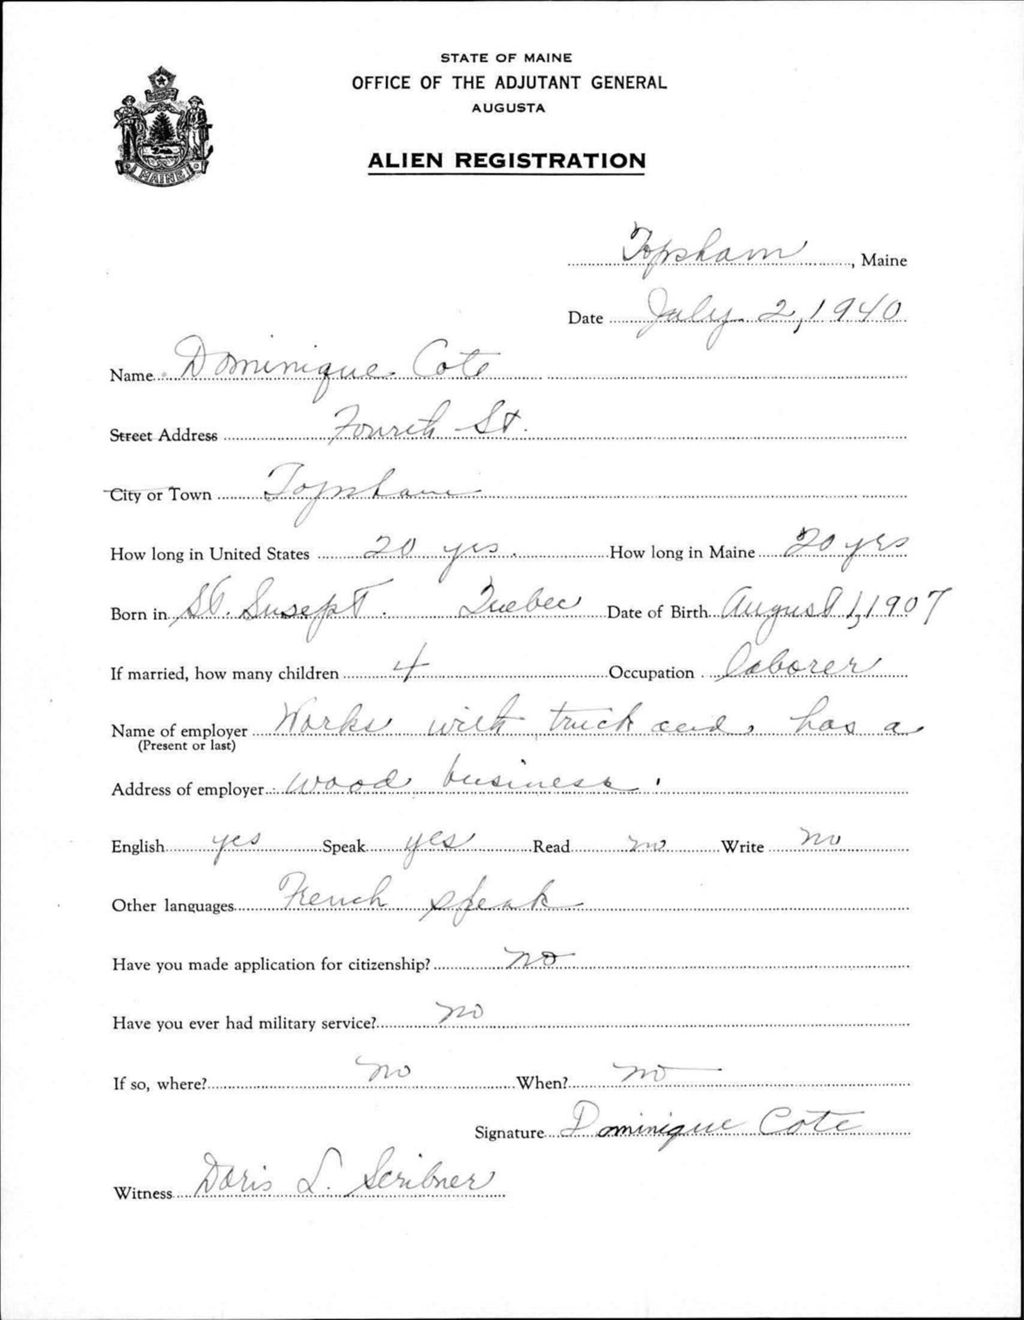 STATE OF MAINE
OFFICE OF THE ADJUTANT GENERAL
AUGUSTA
ALIEN REGISTRATION
MAINE
Topsham, Maine
Date July 2, 1940
Name Dominique Cote
Street Address Fourth St.
City or Town Topsham
How long in United States 20 yrs. How long in Maine 20 yrs
Born in St. Susept. Quebec Date of Birth August 1, 1907
If married, how many children 4 Occupation laborer
Name of employer Works with truck and has a
(Present or last)
Address of employer wood business.
English yes Speak yes Read no Write no
Other languages French speak
Have you made application for citizenship? no
Have you ever had military service? no
If so, where? no When? no
Signature Dominique Cote
Witness Doris L. Scribner